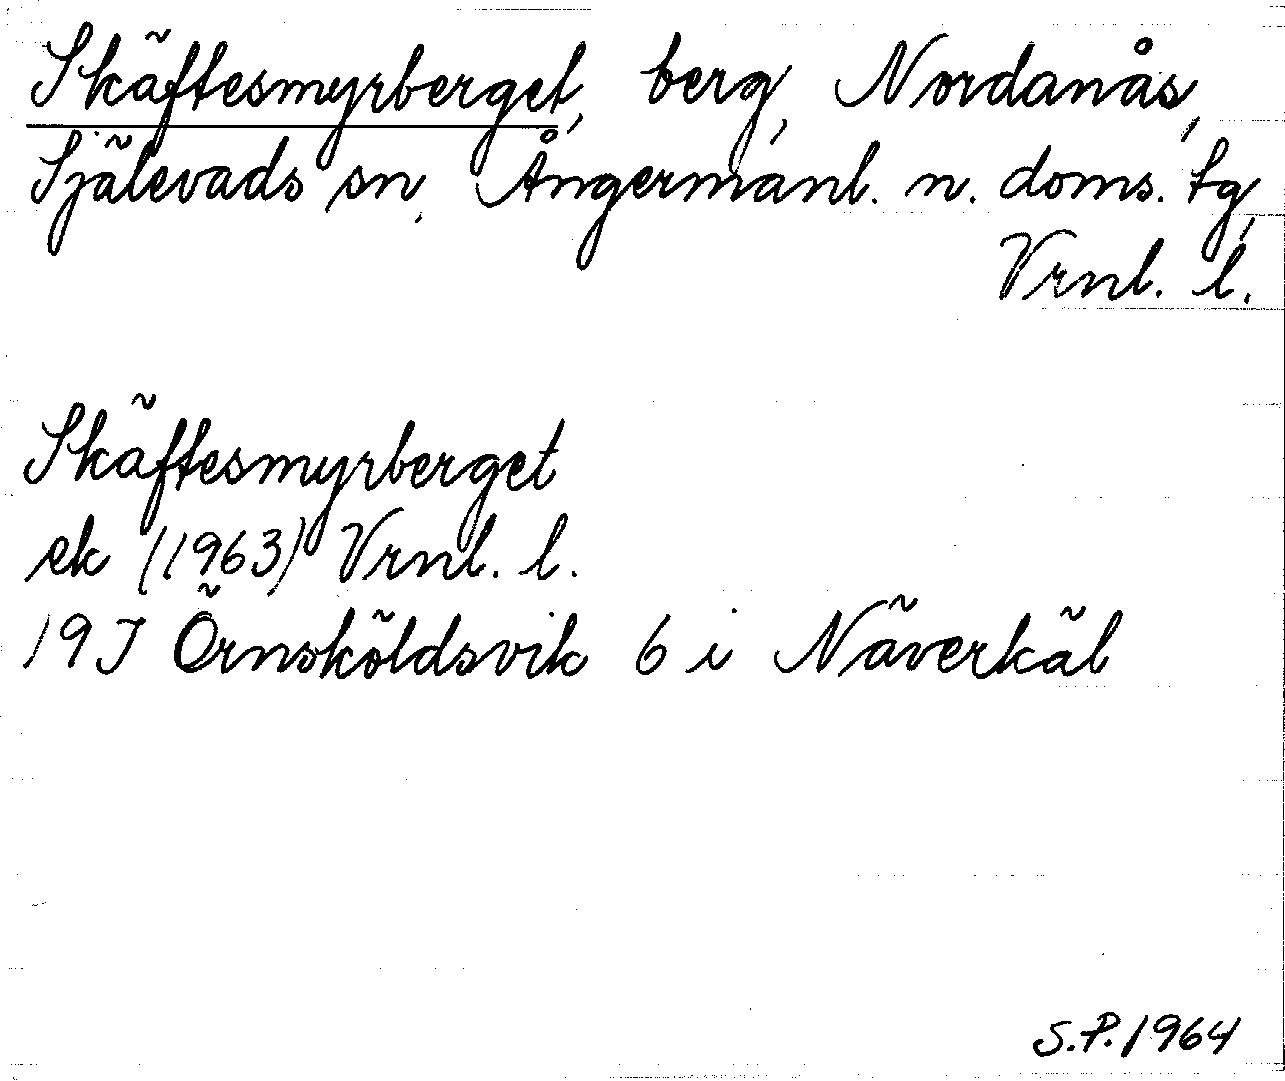 Skäftesmyrberget, berg, Nordanås,
Själevads sn, Ångermanl. n. doms. tg,
Vrnl. l.
Skäftesmyrberget
ek (1963) Vrnl. l.
19J Örnsköldsvik 6 i Näverkäl
S.P. 1964